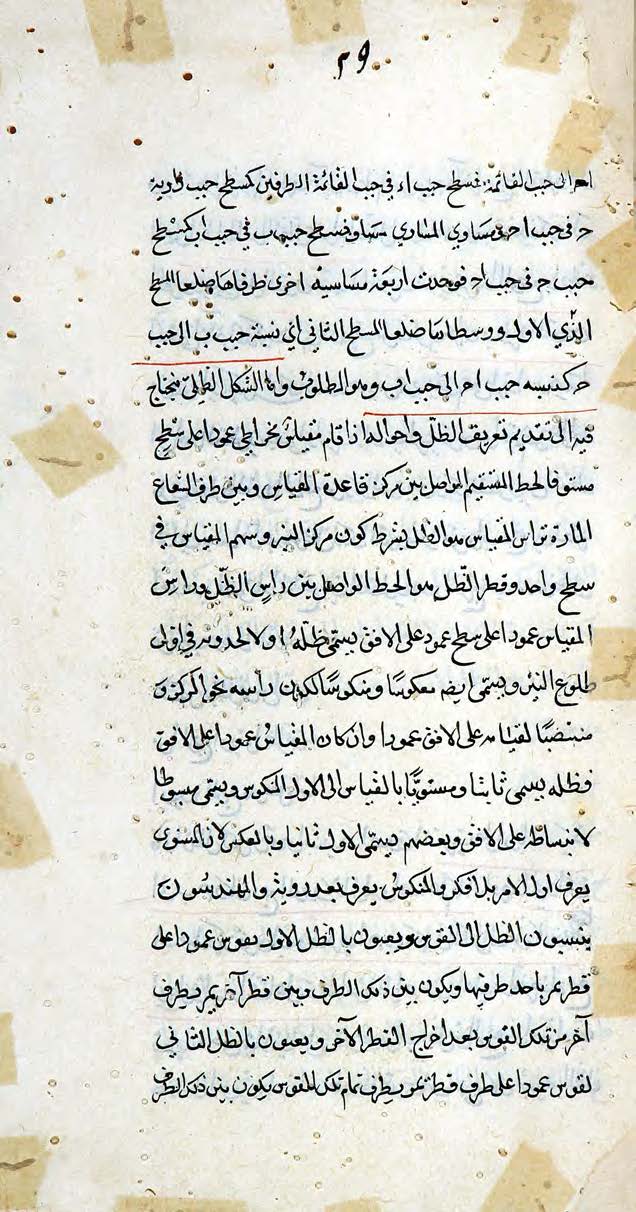 ٢٩
ا حـ الى جيب القائمة فسطح جيب ا ء في جيب القائمة الطرفين كسطح جيب زاوية
حـ في جيب ا حـ ومساوي المساوي مساو فسطح جيب ب في جيب ا ب كسطح
جيب حـ في جيب ا حـ فوجدت اربعة متناسبة اخرى طرفاها ضلعا المسطح
الذي الاول ووسطاها ضلعا المسطح الثاني اي نسبة جيب ب الى جيب
حـ كنسبة جيب ا حـ الى جيب ا ب وهو المطلوب واما الشكل الظلي فيحتاج
فيه الى تقديم تعريف الظل واحواله اذا قام مقياس مخروطي عمودا على سطح
مستو فالخط المستقيم الواصل بين مركز قاعدة المقياس وبين طرف الشعاع
المارة براس المقياس هو الظل بشرط كون مركز النير وسهم المقياس في
سطح واحد وقطر الظل هو الخط الواصل بين راس الظل وراس
المقياس عمودا على سطح عمود على الافق يسمى ظله اولا لحدوثه في اول
طلوع النير ويسمى ايضا معكوسا ومنكوسا لكون راسه نحو المركز و
منتصبا لقيامه على الافق عمودا وان كان المقياس عمودا على الافق
فظله يسمى ثانيا ومستويا بالقياس الى الاول المنكوس ويسمى مبسوطا
لانبساطه على الافق وبعضهم يسمى الاول ثانيا وبالعكس لان المستوى
يعرف اول الامر بلا فكر والمنكوس يعرف بعد روية والمهندسون
ينسبون الظل الى القوس ويعنون بالظل الاول لقوس عمودا على
قطر يمر باحد طرفيها ويكون بين ذلك الطرف وبين قطر آخر يمر بطرف
آخر من تلك القوس بعد اخراج القطر الآخر ويعنون بالظل الثاني
لقوس عمودا على طرف قطر يمر بطرف تمام تلك القوس يكون بين ذلك الطرف